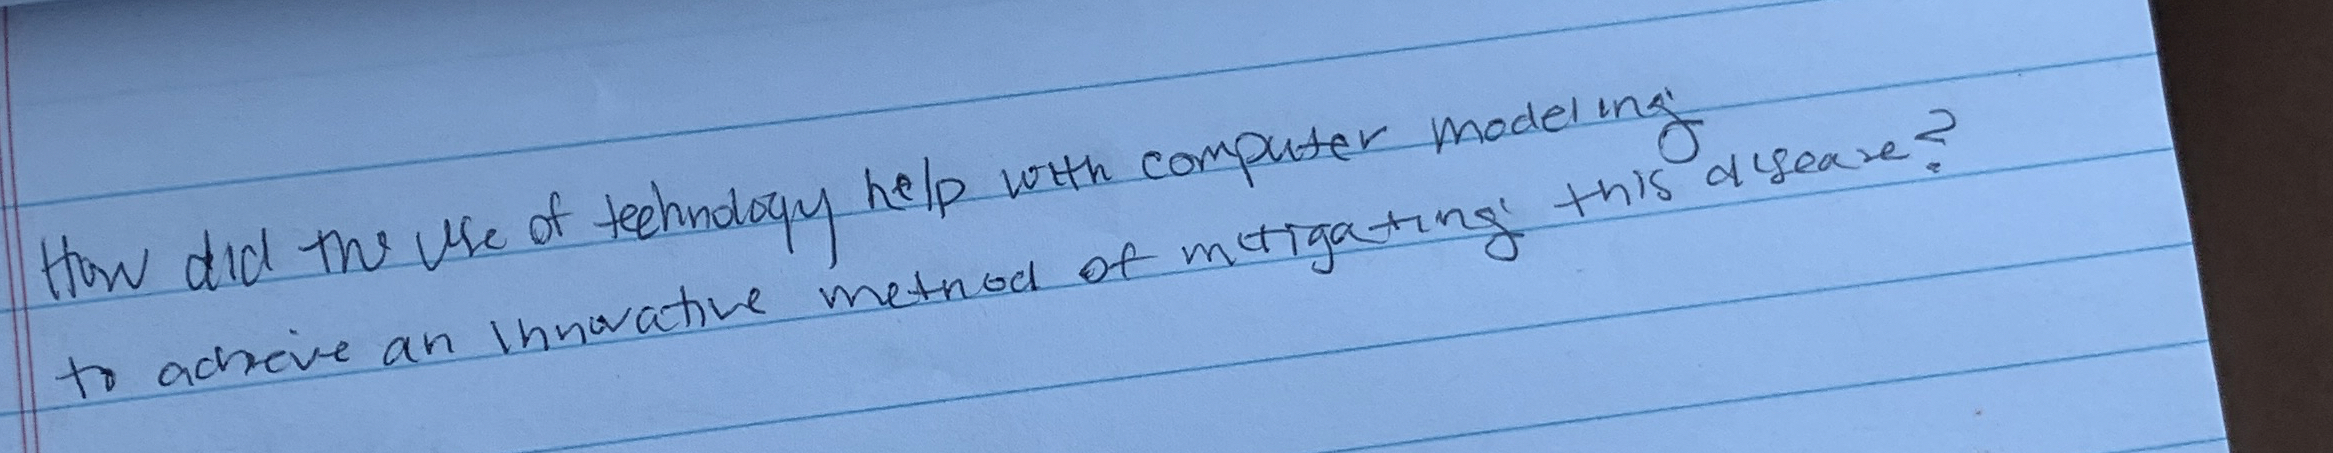 How did the use of technology help with computer modeling
to acheive an innovative method of mitigating this disease?